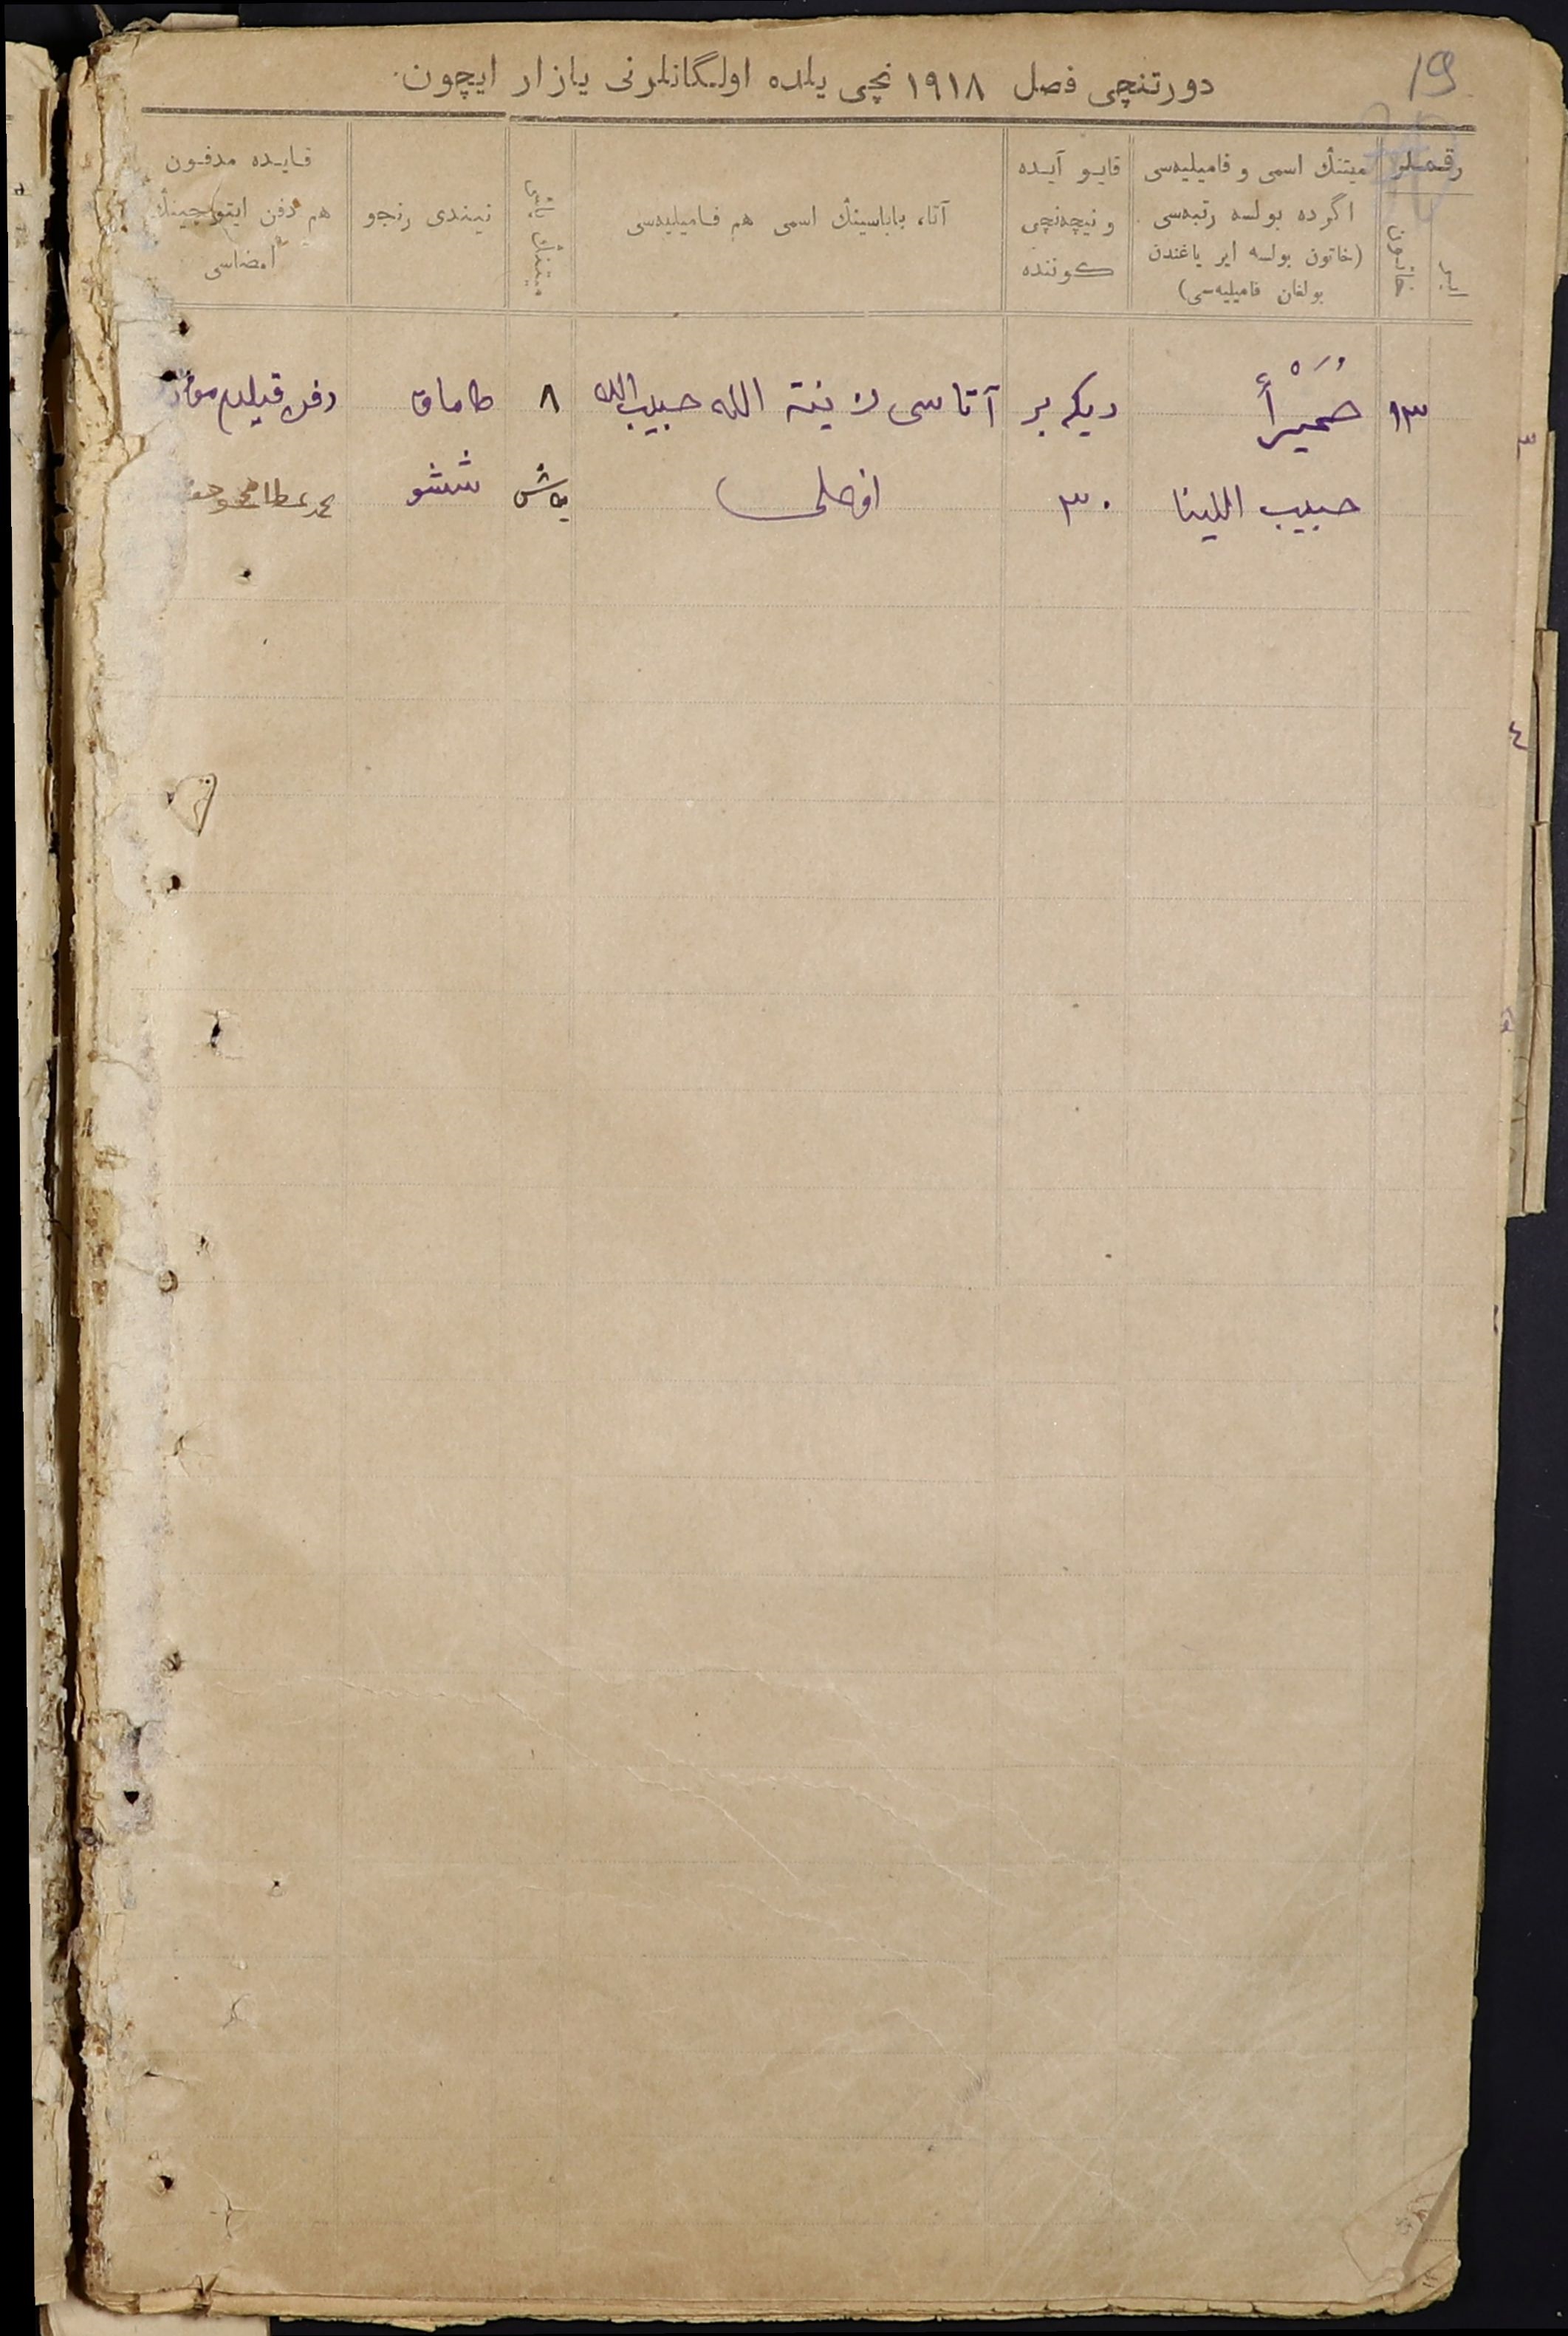 19
دورتنچی فصل ۱۹۱۸ نچی یلده اولگانلرنی یازار ایچون
رقملر
میتنڭ اسمی و فامیلیه‌سی
اگرده بولسه رتبه‌سی
(خاتون بولسه ایر یاغندن
بولغان فامیلیه‌سی)
قایو آیده
و نیچه‌نچی
کوننده
آتا، باباسینڭ اسمی هم فامیلیه‌سی
میتنڭ یاشی
نیندی رنجو
قایده مدفون
هم دفن ایتوچینڭ
امضاسی
۱۳
حُمَيْرأ
دیکه‌بر
آتاسی زینة الله حبیب الله
۸
طاماق
دفن قیلدم
حبیب اللینا
۳۰
اوغلی
یاش
ششو